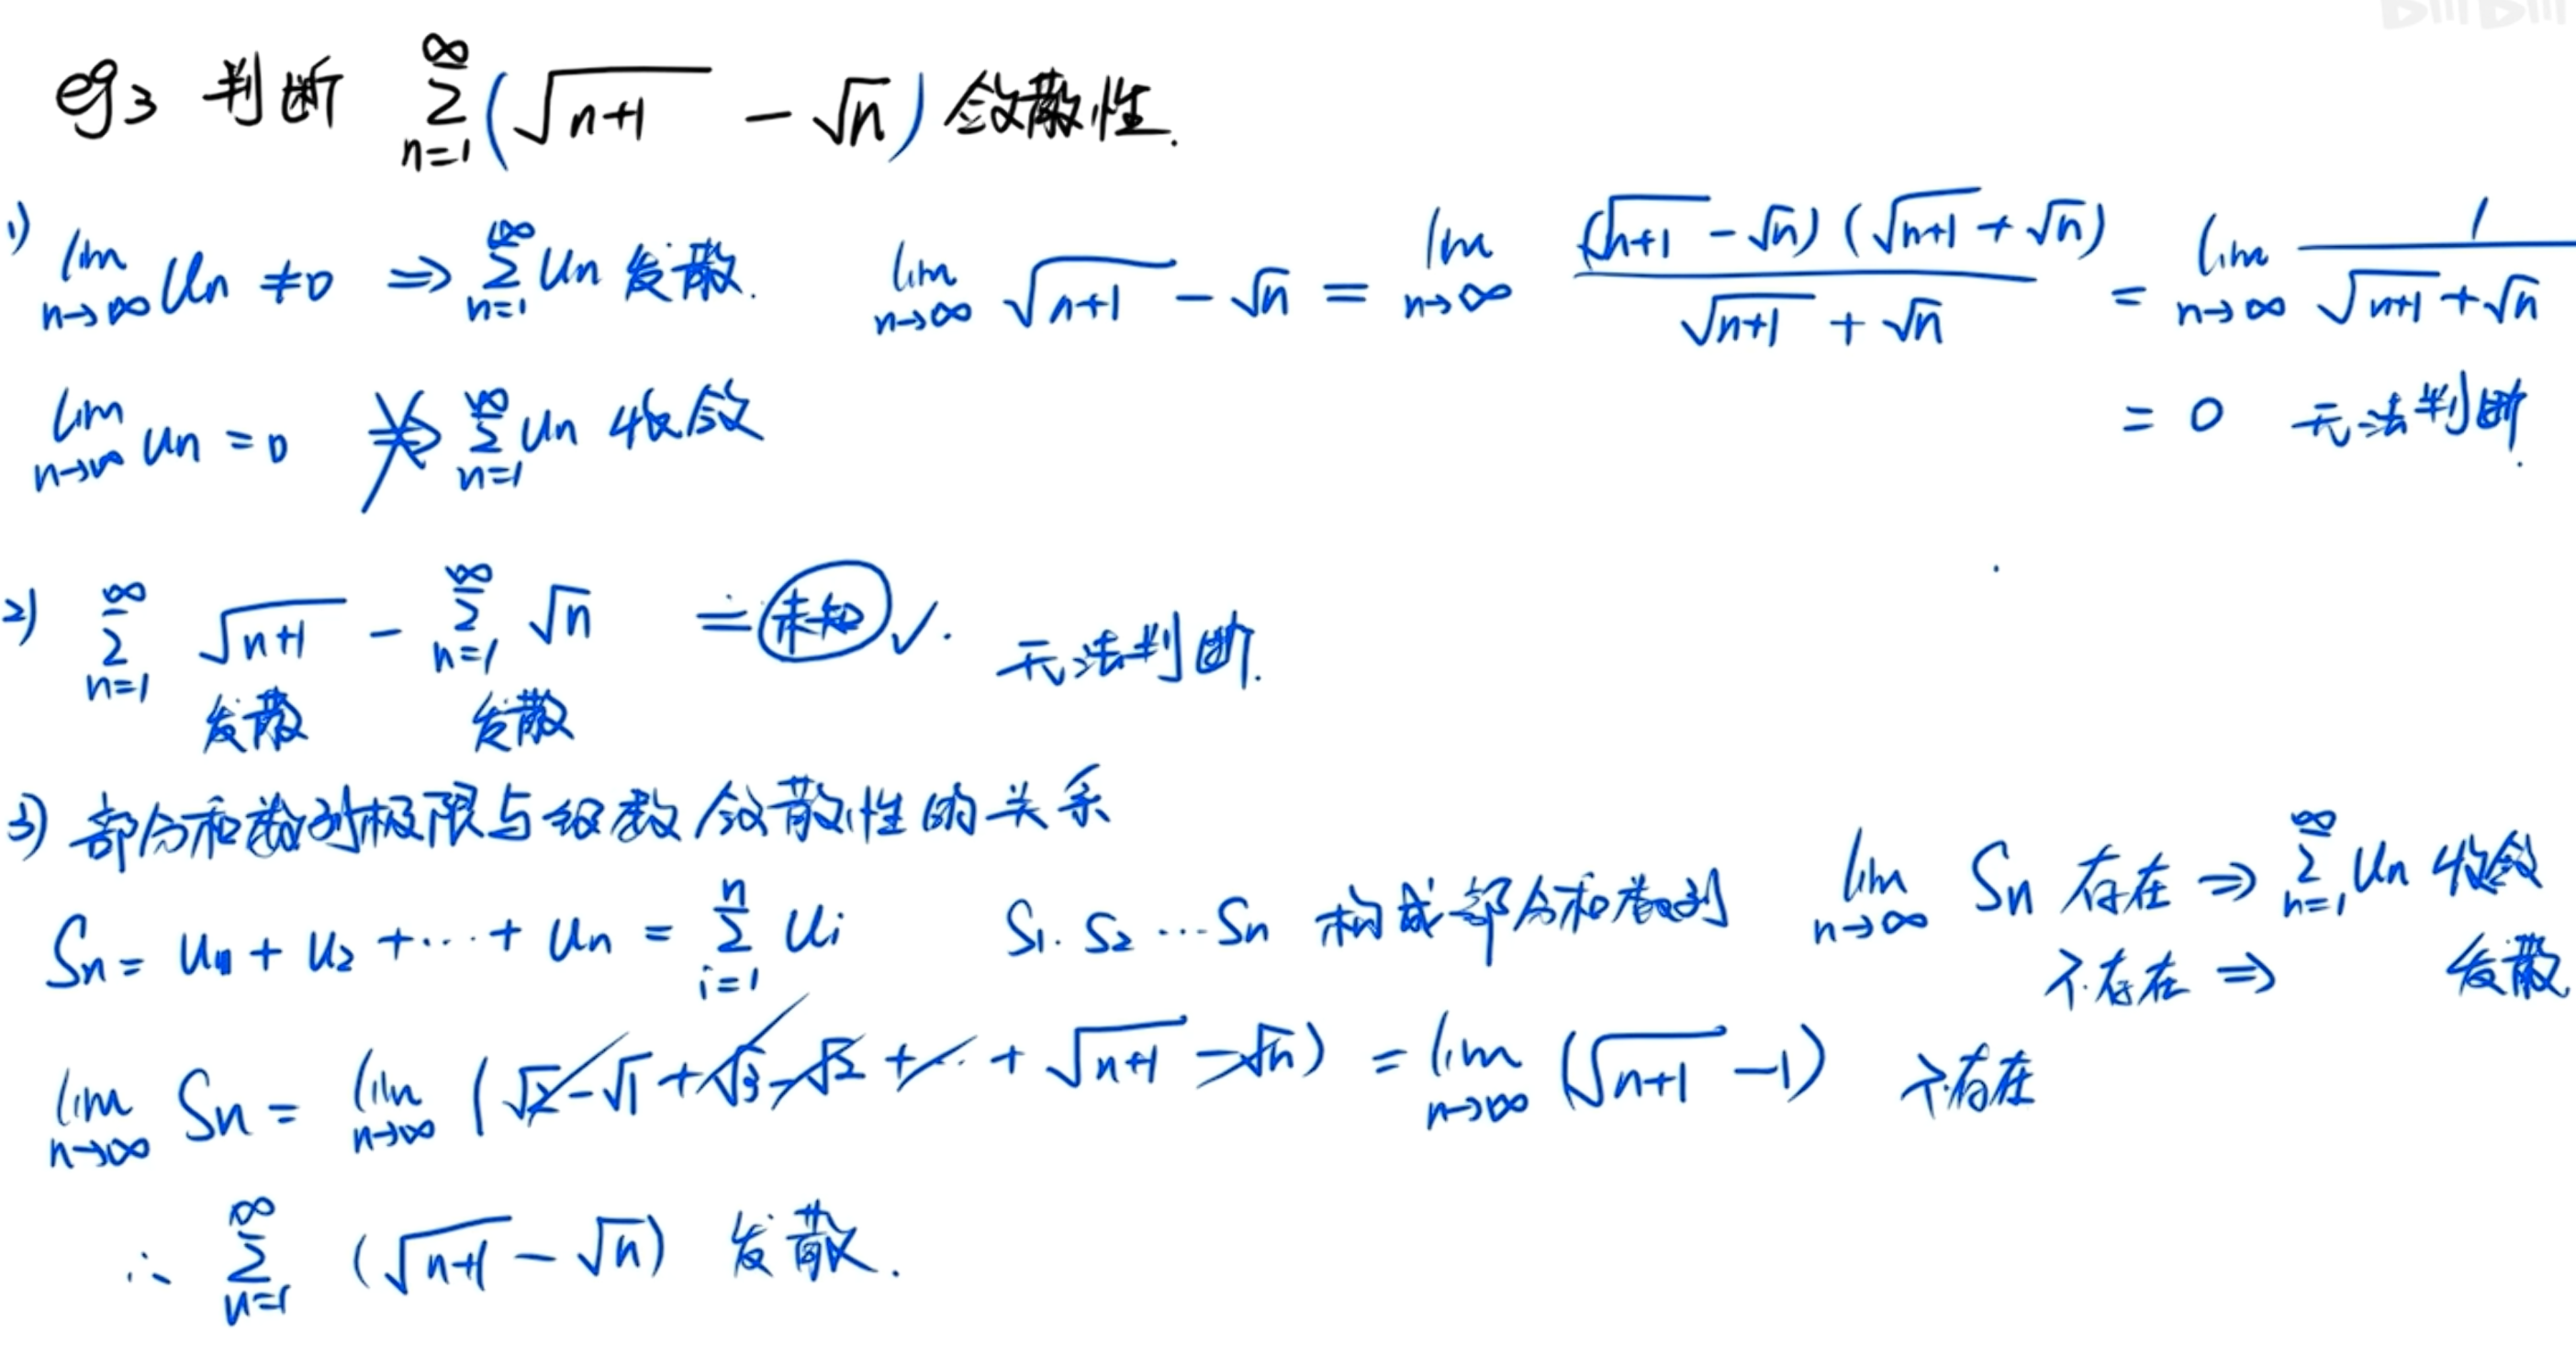 eg3 判断 ∑_{n=1}^{∞} (√(n+1) - √n) 敛散性.
1) lim_{n→∞} Un ≠ 0 ⇒ ∑_{n=1}^{∞} Un 发散. lim_{n→∞} √(n+1) - √n = lim_{n→∞} (√(n+1) - √n)(√(n+1) + √n) / (√(n+1) + √n) = lim_{n→∞} 1 / (√(n+1) + √n)
lim_{n→∞} Un = 0 ⇏ ∑_{n=1}^{∞} Un 收敛 = 0 无法判断.
2) ∑_{n=1}^{∞} √(n+1) - ∑_{n=1}^{∞} √n = 未知 ✓. 无法判断.
发散 发散
3) 部分和数列极限与级数敛散性的关系
Sn = u1 + u2 + ··· + un = ∑_{i=1}^{n} ui S1. S2 ··· Sn 构成部分和数列 lim_{n→∞} Sn 存在 ⇒ ∑_{n=1}^{∞} Un 收敛
不存在 ⇒ 发散
lim_{n→∞} Sn = lim_{n→∞} (√2 - √1 + √3 - √2 + ··· + √(n+1) - √n) = lim_{n→∞} (√(n+1) - 1) 不存在
∴ ∑_{n=1}^{∞} (√(n+1) - √n) 发散.